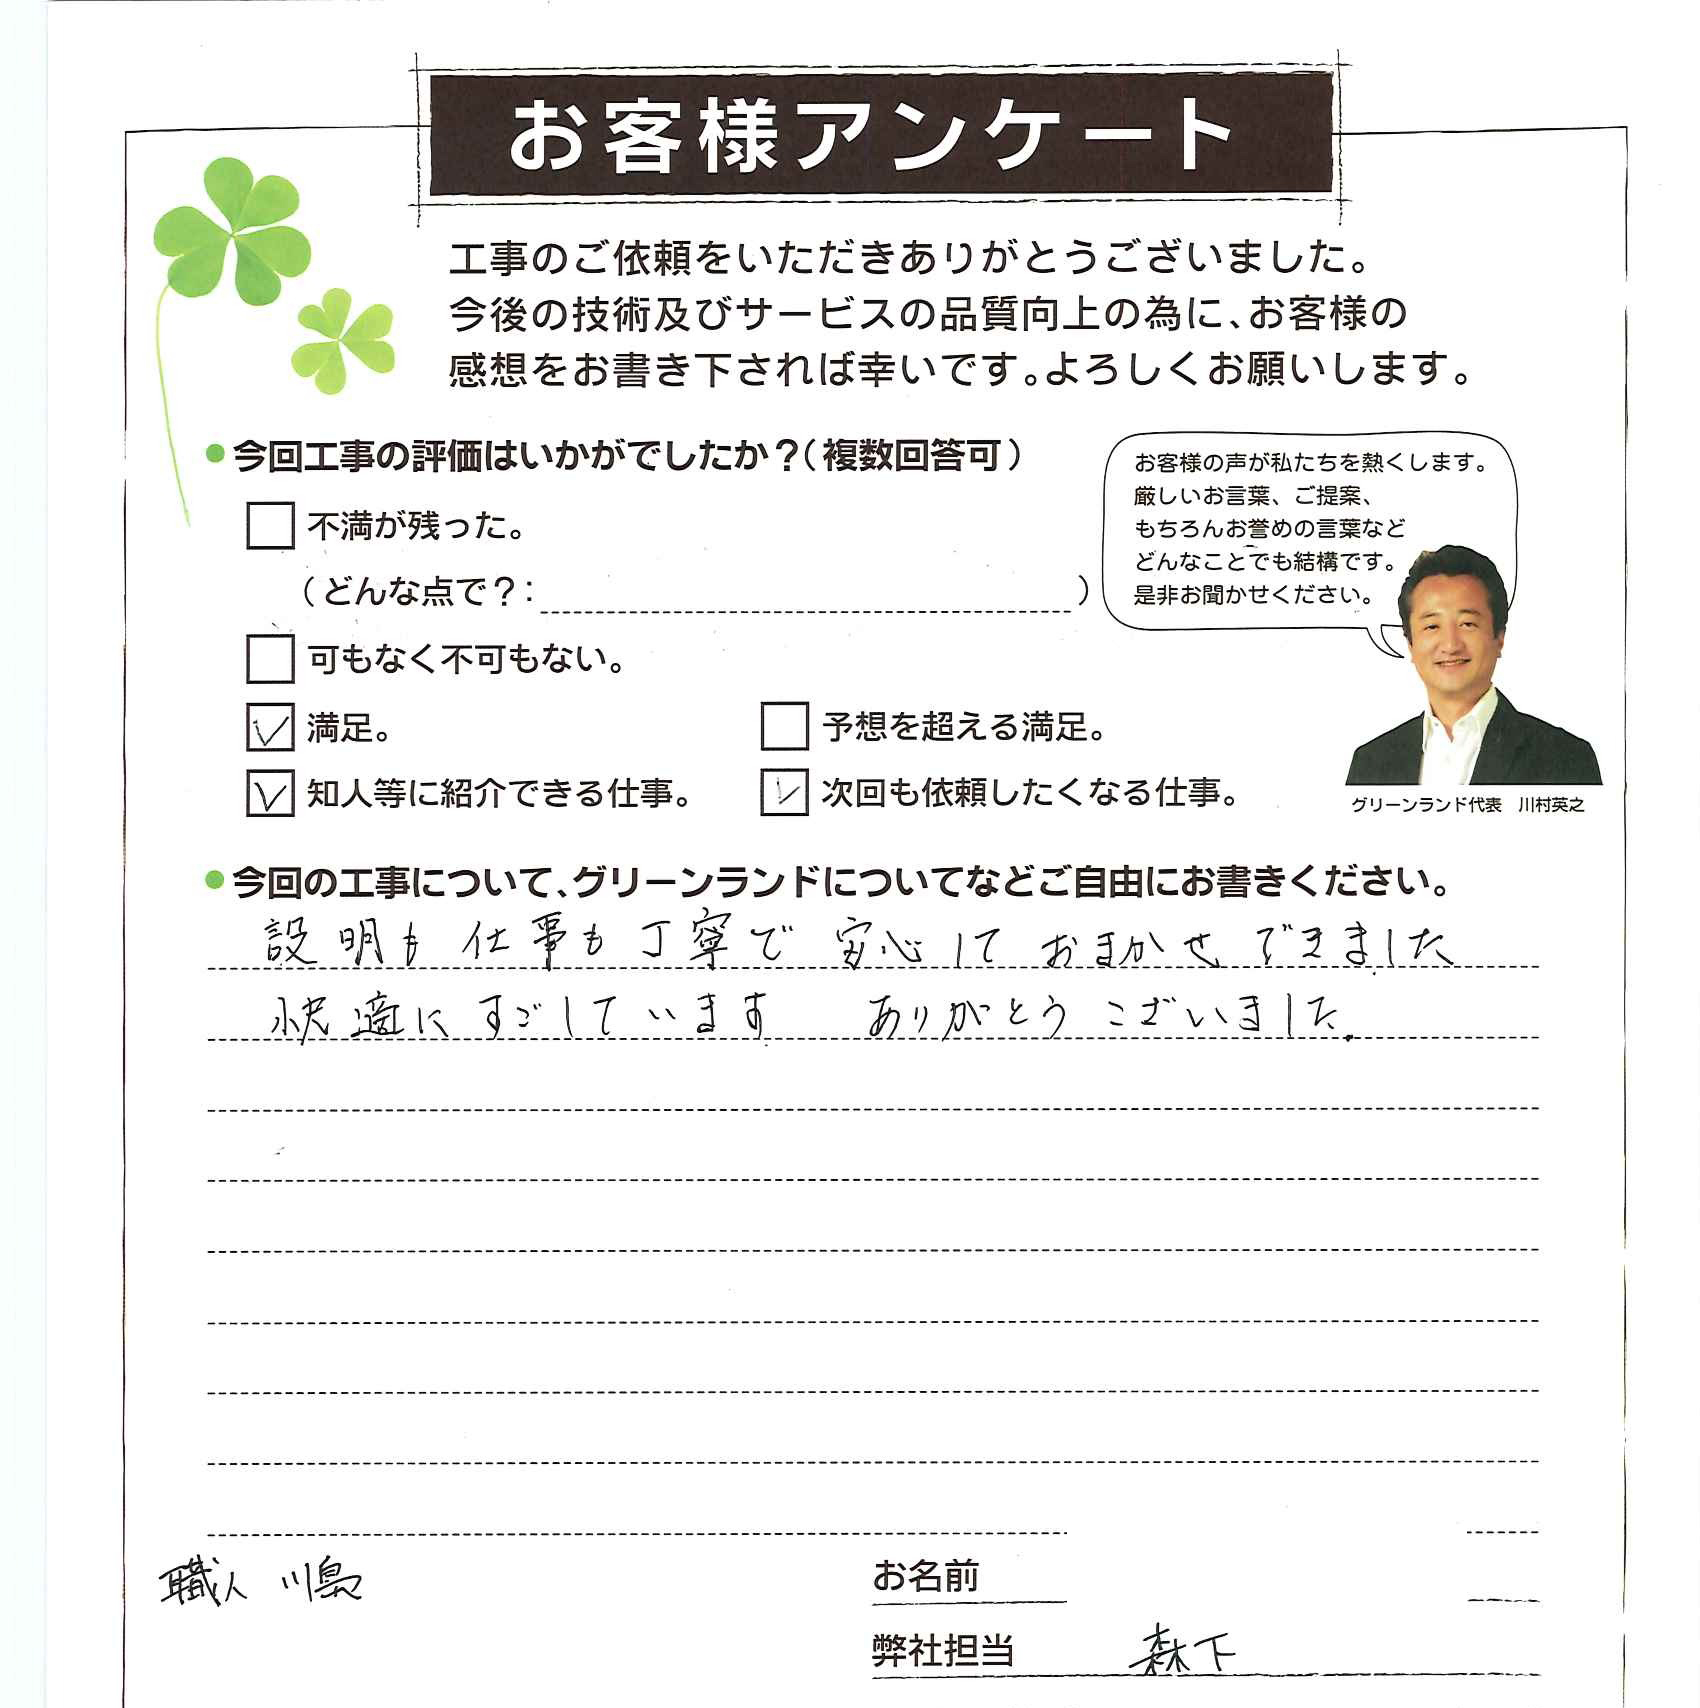 お客様アンケート
工事のご依頼をいただきありがとうございました。
今後の技術及びサービスの品質向上の為に、お客様の
感想をお書き下されば幸いです。よろしくお願いします。
●今回工事の評価はいかがでしたか?(複数回答可)
不満が残った。
(どんな点で?: )
可もなく不可もない。
満足。
予想を超える満足。
知人等に紹介できる仕事。
次回も依頼したくなる仕事。
お客様の声が私たちを熱くします。
厳しいお言葉、ご提案、
もちろんお誉めの言葉など
どんなことでも結構です。
是非お聞かせください。
グリーンランド代表 川村英之
●今回の工事について、グリーンランドについてなどご自由にお書きください。
設明も仕事も丁寧で 安心して おまかせ できました
快適に すごしています ありがとう ございました.
職人 川島
お名前
弊社担当 森下